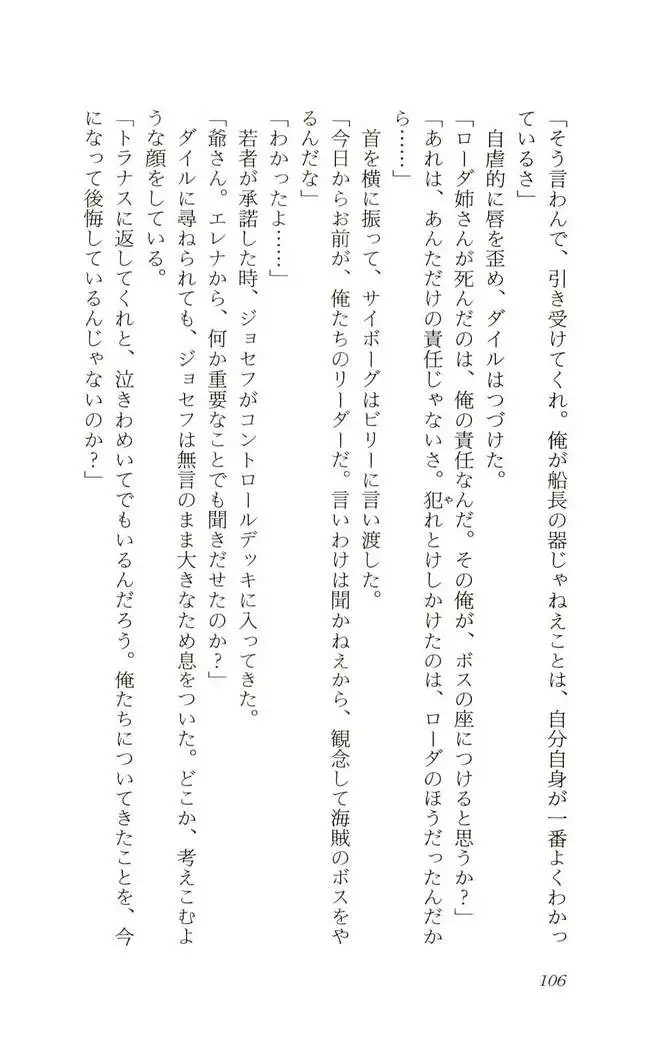 「そう言わんで、引き受けてくれ。俺が船長の器じゃねえことは、自分自身が一番よくわかっ
ているさ」
自虐的に唇を歪め、ダイルはつづけた。
「ローダ姉さんが死んだのは、俺の責任なんだ。その俺が、ボスの座につけると思うか？」
「あれは、あんただけの責任じゃないさ。犯れとけしかけたのは、ローダのほうだったんだか
ら……」
首を横に振って、サイボーグはビリーに言い渡した。
「今日からお前が、俺たちのリーダーだ。言いわけは聞かねえから、観念して海賊のボスをや
るんだな」
「わかったよ……」
若者が承諾した時、ジョセフがコントロールデッキに入ってきた。
「爺さん。エレナから、何か重要なことでも聞きだせたのか？」
ダイルに尋ねられても、ジョセフは無言のまま大きなため息をついた。どこか、考えこむよ
うな顔をしている。
「トラナスに返してくれと、泣きわめいてでもいるんだろう。俺たちについてきたことを、今
になって後悔しているんじゃないのか？」
や
106